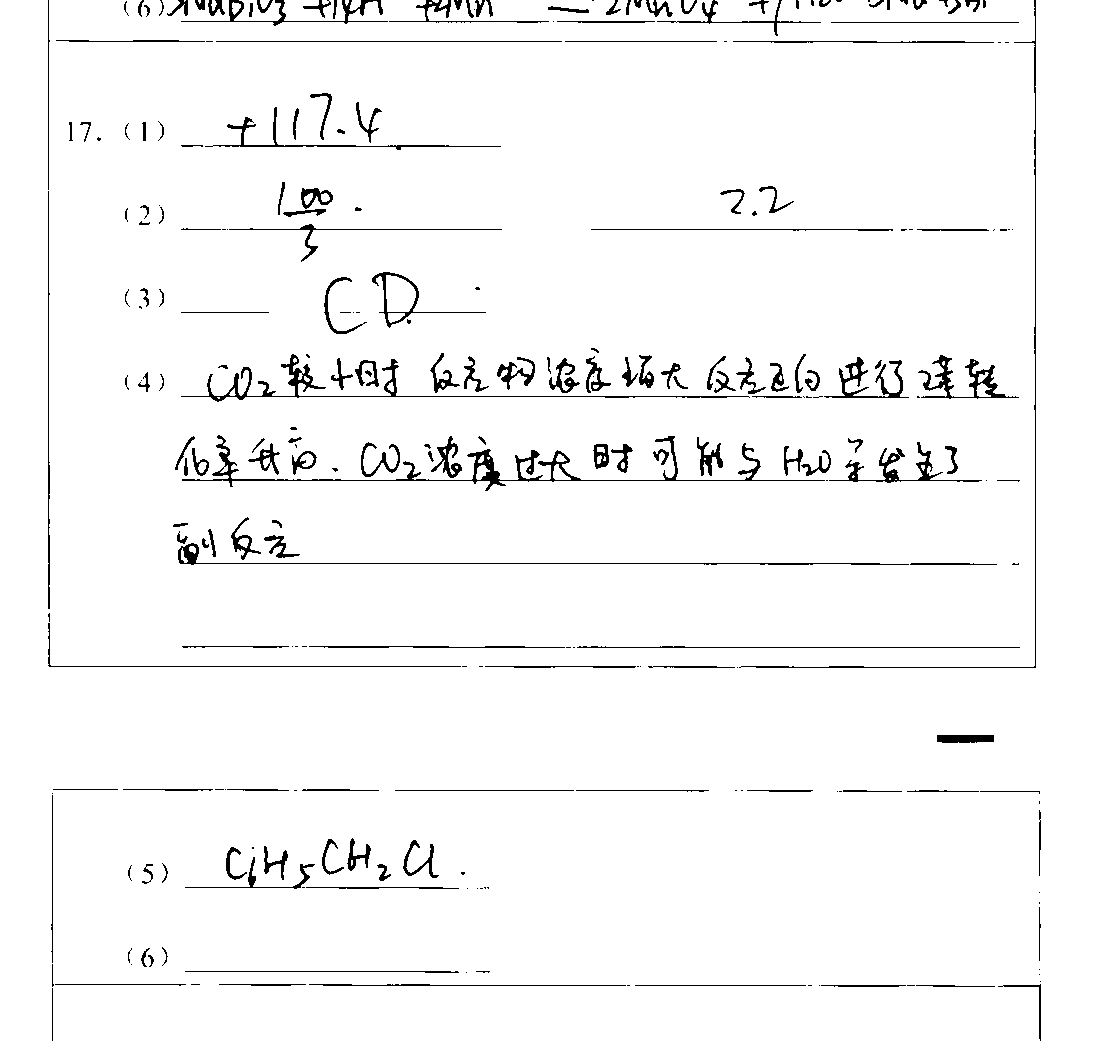 (6)
17. (1) +117.4
(2) 100/3 . 2.2
(3) CD
(4) CO₂较小时 反应物浓度增大 反应正向进行 转
化率升高. CO₂浓度过大时可能与H₂O等发生了
副反应
(5) C₆H₅CH₂Cl .
(6)